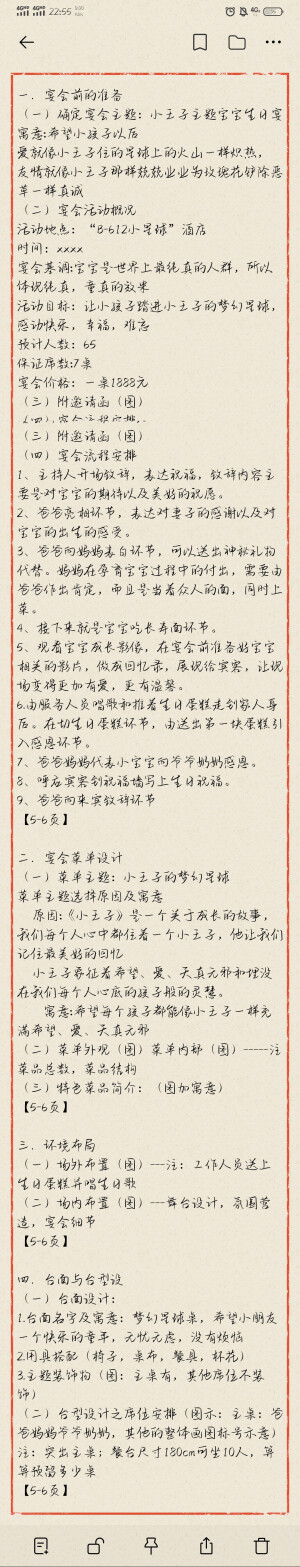 22:55
一．宴会前的准备
（一）确定宴会主题：小王子主题宝宝生日宴
寓意:希望小孩子以后
爱就像小王子住的星球上的火山一样炽热，
友情就像小王子那样兢兢业业为玫瑰花铲除恶
草一样真诚
（二）宴会活动概况
活动地点：“B-612小星球”酒店
时间：xxxx
宴会基调:宝宝是世界上最纯真的人群，所以
体现纯真，童真的效果
活动目标：让小孩子踏进小王子的梦幻星球，
感动快乐，幸福，难忘
预计人数：65
保证席数:7桌
宴会价格：一桌1888元
（三）附邀请函（图）
（三）附邀请函（图）
（四）宴会流程安排
1、主持人开场致辞，表达祝福，致辞内容主
要是对宝宝的期待以及美好的祝愿。
2、爸爸亮相环节，表达对妻子的感谢以及对
宝宝的出生的感受。
3、爸爸向妈妈表白环节，可以送出神秘礼物
代替。妈妈在孕育宝宝过程中的付出，需要由
爸爸作出肯定，而且是当着众人的面，同时上
菜。
4、接下来就是宝宝吃长寿面环节。
5、观看宝宝成长影像，在宴会前准备好宝宝
相关的影片，做成回忆录，展现给宾客，让现
场变得更加有爱，更有温馨。
6.由服务人员唱歌和推着生日蛋糕走到家人身
后。在切生日蛋糕环节，由送出第一块蛋糕引
入感恩环节。
7、爸爸妈妈代表小宝宝向爷爷奶奶感恩。
8、呼应宾客到祝福墙写上生日祝福。
9、爸爸向来宾致辞环节
【5-6页】
二．宴会菜单设计
（一）菜单主题：小王子的梦幻星球
菜单主题选择原因及寓意
原因:《小王子》是一个关于成长的故事，
我们每个人心中都住着一个小王子，他让我们
记住最美好的回忆
小王子象征着希望、爱、天真无邪和埋没
在我们每个人心底的孩子般的灵慧。
寓意:希望每个孩子都能像小王子一样充
满希望、爱、天真无邪
（二）菜单外观（图）菜单内部（图）-----注
菜品总数，菜品结构
（三）特色菜品简介：（图加寓意）
【5-6页】
三．环境布局
（一）场外布置（图）---注：工作人员送上
生日蛋糕并唱生日歌
（二）场内布置（图）---舞台设计，氛围营
造，宴会细节
【5-6页】
四．台面与台型设
（一）台面设计：
1.台面名字及寓意：梦幻星球桌，希望小朋友
一个快乐的童年，无忧无虑，没有烦恼
2.用具搭配（椅子，桌布，餐具，杯花）
3.主题装饰物（图：主桌有，其他席位不装
饰）
（二）台型设计之席位安排（图示：主桌：爸
爸妈妈爷爷奶奶，其他的整体画图标号示意）
注：突出主桌；餐台尺寸180cm可坐10人，算
算预留多少桌
【5-6页】